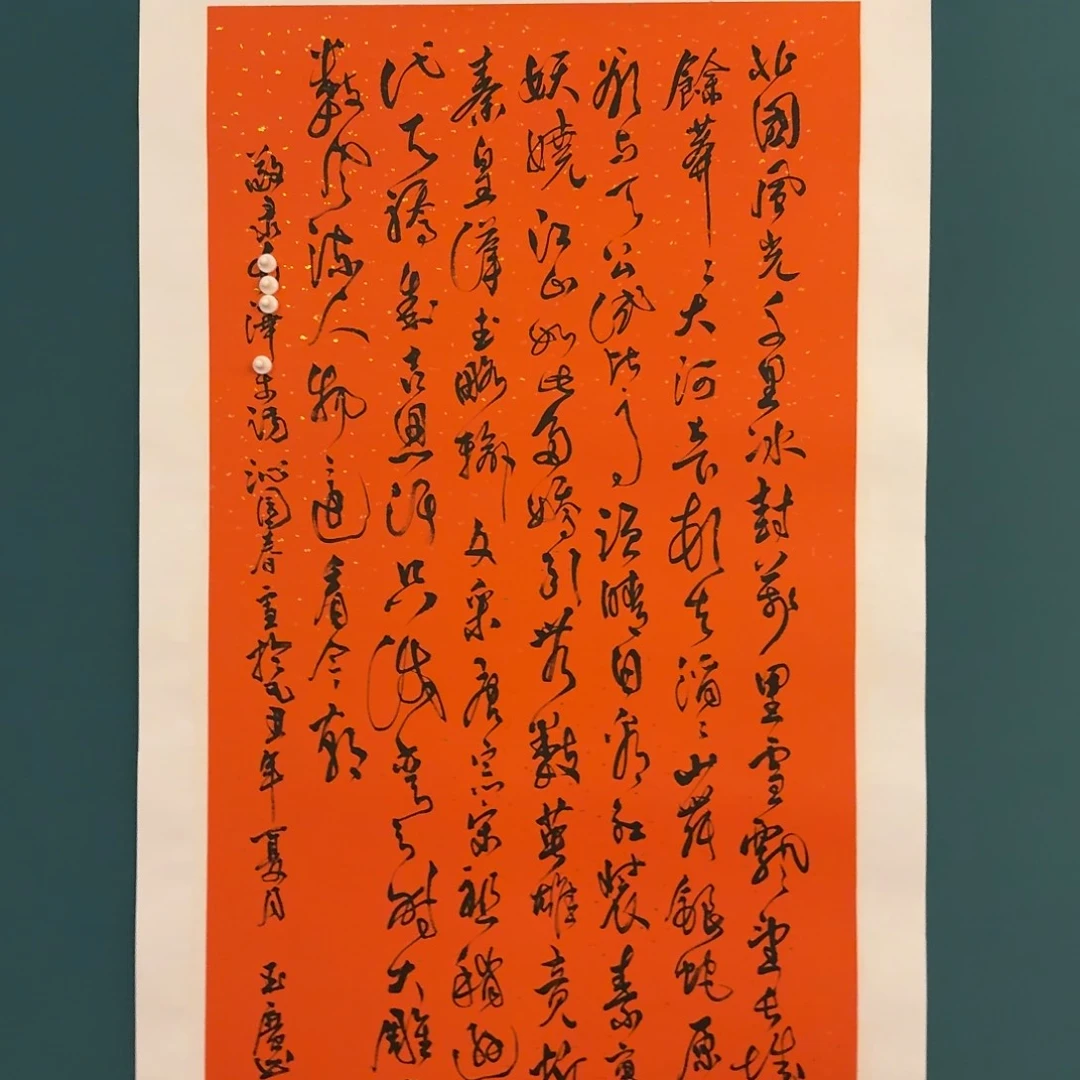 北國風光千里冰封萬里雪飄望長城
餘莽々大河上下頓失滔々山舞銀蛇原
欲与天公試比高須晴日看紅裝素裹
妖嬈江山如此多嬌引無數英雄竞折
秦皇漢武略輸文采唐宗宋祖稍遜
代天驕成吉思汗只識弯弓射大雕
數風流人物還看今朝
敬录澤东词沁园春雪於己丑年夏月